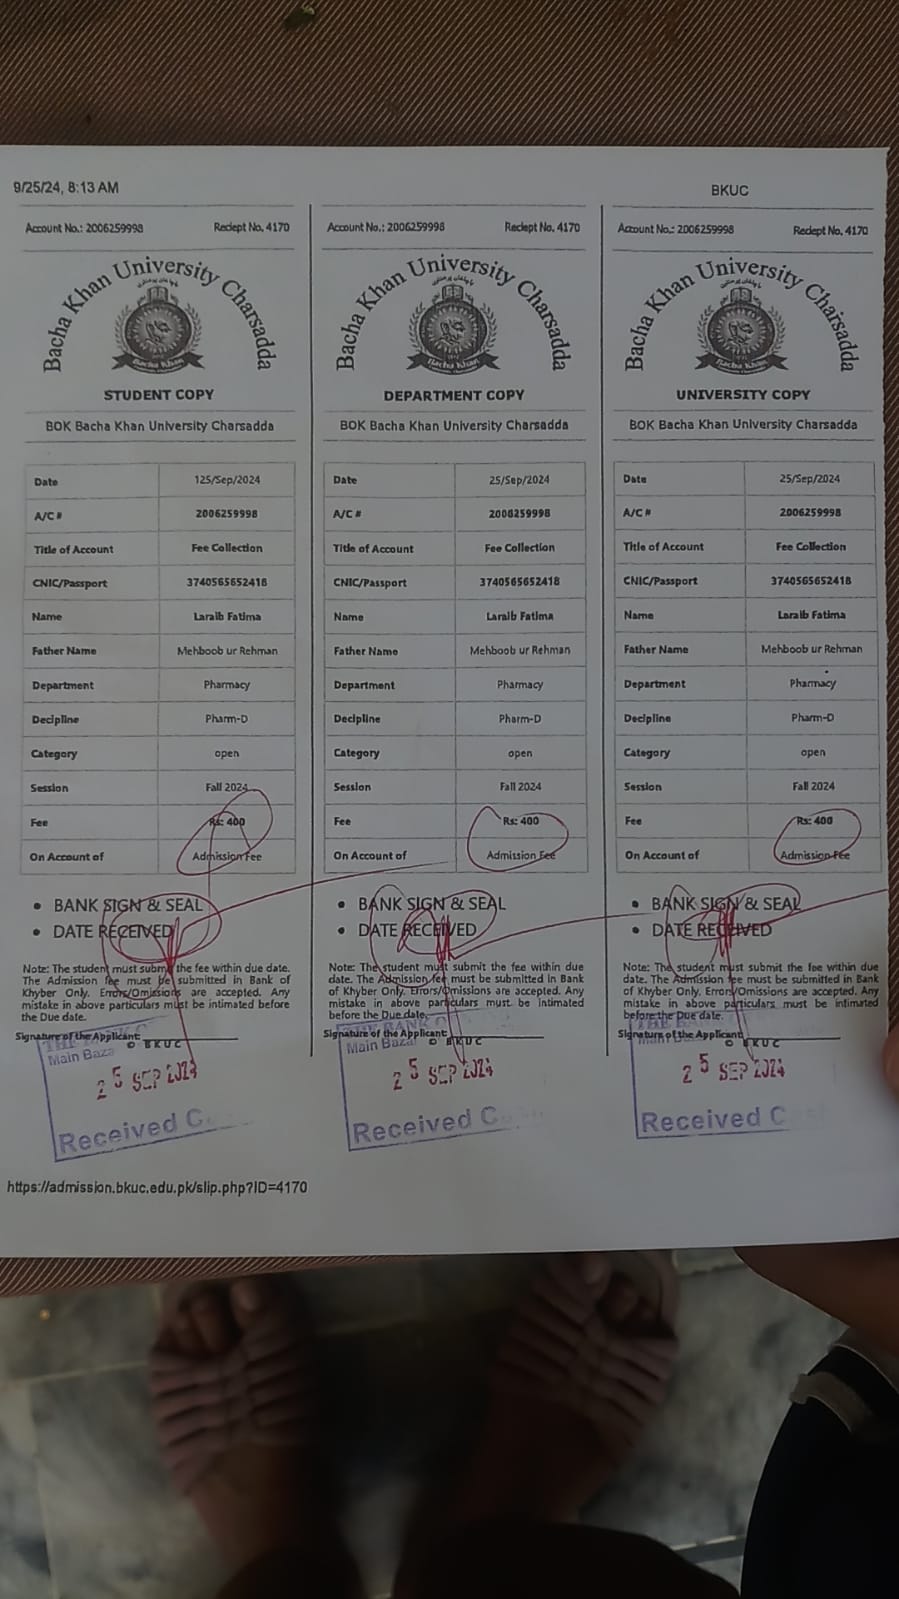 9/25/24, 8:13 AM
BKUC
Account No.: 2006259998 Reciept No. 4170
Bacha Khan University Charsadda
Bacha Khan
STUDENT COPY
BOK Bacha Khan University Charsadda
Date 125/Sep/2024
A/C # 2006259998
Title of Account Fee Collection
CNIC/Passport 3740565652418
Name Laraib Fatima
Father Name Mehboob ur Rehman
Department Pharmacy
Decipline Pharm-D
Category open
Session Fall 2024
Fee Rs: 400
On Account of Admission Fee
• BANK SIGN & SEAL
• DATE RECEIVED
Note: The student must submit the fee within due date.
The Admission fee must be submitted in Bank of
Khyber Only. Errors/Omissions are accepted. Any
mistake in above particulars must be intimated before
the Due date.
Signature of the Applicant:
© BKUC
THE BANK
Main Baza
25 SEP 2024
Received C
Account No.: 2006259998 Reciept No. 4170
Bacha Khan University Charsadda
Bacha Khan
DEPARTMENT COPY
BOK Bacha Khan University Charsadda
Date 25/Sep/2024
A/C # 2006259998
Title of Account Fee Collection
CNIC/Passport 3740565652418
Name Laraib Fatima
Father Name Mehboob ur Rehman
Department Pharmacy
Decipline Pharm-D
Category open
Session Fall 2024
Fee Rs: 400
On Account of Admission Fee
• BANK SIGN & SEAL
• DATE RECEIVED
Note: The student must submit the fee within due
date. The Admission fee must be submitted in Bank
of Khyber Only. Errors/Omissions are accepted. Any
mistake in above particulars must be intimated
before the Due date.
Signature of the Applicant:
© BKUC
THE BANK
Main Bazar
25 SEP 2024
Received C
Account No.: 2006259998 Reciept No. 4170
Bacha Khan University Charsadda
Bacha Khan
UNIVERSITY COPY
BOK Bacha Khan University Charsadda
Date 25/Sep/2024
A/C # 2006259998
Title of Account Fee Collection
CNIC/Passport 3740565652418
Name Laraib Fatima
Father Name Mehboob ur Rehman
Department Pharmacy
Decipline Pharm-D
Category open
Session Fall 2024
Fee Rs: 400
On Account of Admission Fee
• BANK SIGN & SEAL
• DATE RECEIVED
Note: The student must submit the fee within due
date. The Admission fee must be submitted in Bank
of Khyber Only. Errors/Omissions are accepted. Any
mistake in above particulars must be intimated
before the Due date.
Signature of the Applicant:
© BKUC
THE BANK
Main Bazar
25 SEP 2024
Received Cash
https://admission.bkuc.edu.pk/slip.php?ID=4170